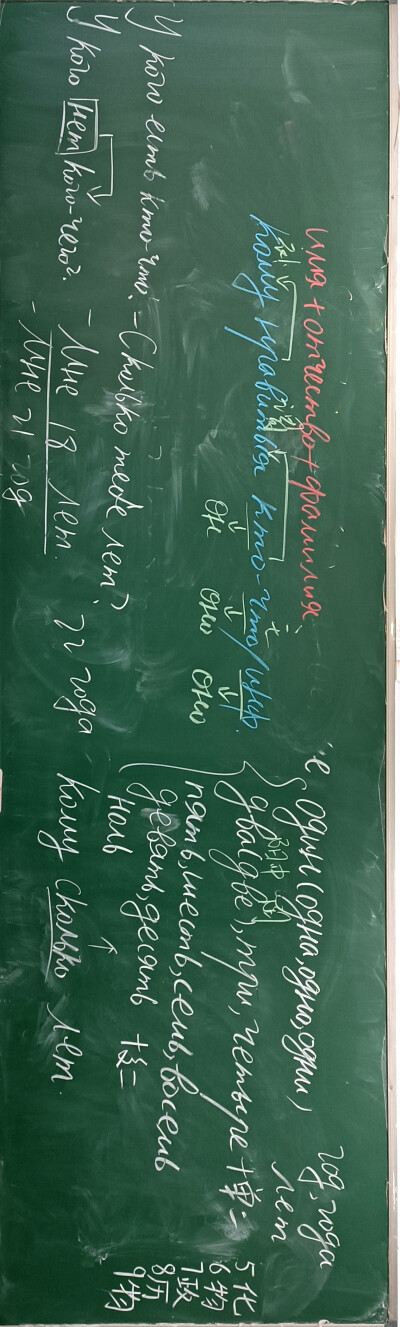 имя + отчество + фамилия
Кому нравиться кто-что/инф.
он оно оно
У кого есть кто-что.
У кого нет кого-чего?
- Сколько тебе лет?
- Мне 18 лет.
- Мне 21 год
22 года
один (одна, одно, одни)
два (две), три, четыре + 单二
阳中 阴
пять, шесть, семь, восемь
девять, десять +复二
ноль
кому сколько лет.
год, года
лет
5化
6物
7政
8历
9物